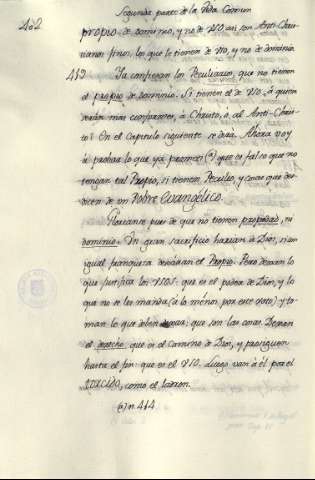 402
Segunda parte de la Vida Comun
propio de dominio, y no de uso assi son Anti-Chris-
tianos finos, los que le tienen de uso, y no de dominio
419 Ya confiesan los Peculiarios, que no tienen
el propio de dominio. Si tienen el de uso, à quien
seràn mas conformes, à Christo, ò al Anti-Chris-
to? En el Capitulo siguiente se dirà. Ahora voy
à probar lo que ya prometi (a) que es falso que no
tengan tal Propio, si tienen Peculio, y cosas que des-
dicen de un Pobre Evangelico.
pues de que no tienen propiedad, ni
dominio. Un gran sacrificio harian à Dios, si con
igual franqueza dexàran el Propio. Pero dexan lo
que justifica los usos que es el poder de Dios, y lo
que no se les manda (à lo mènos por este voto) y to-
man lo que deben que son las cosas. Dexan
el derecho que es el Camino de Dios, y prosiguen
hasta el fin que es el uso. Luego van à èl por el
torcido, como el ladron.
(a) n. 414.